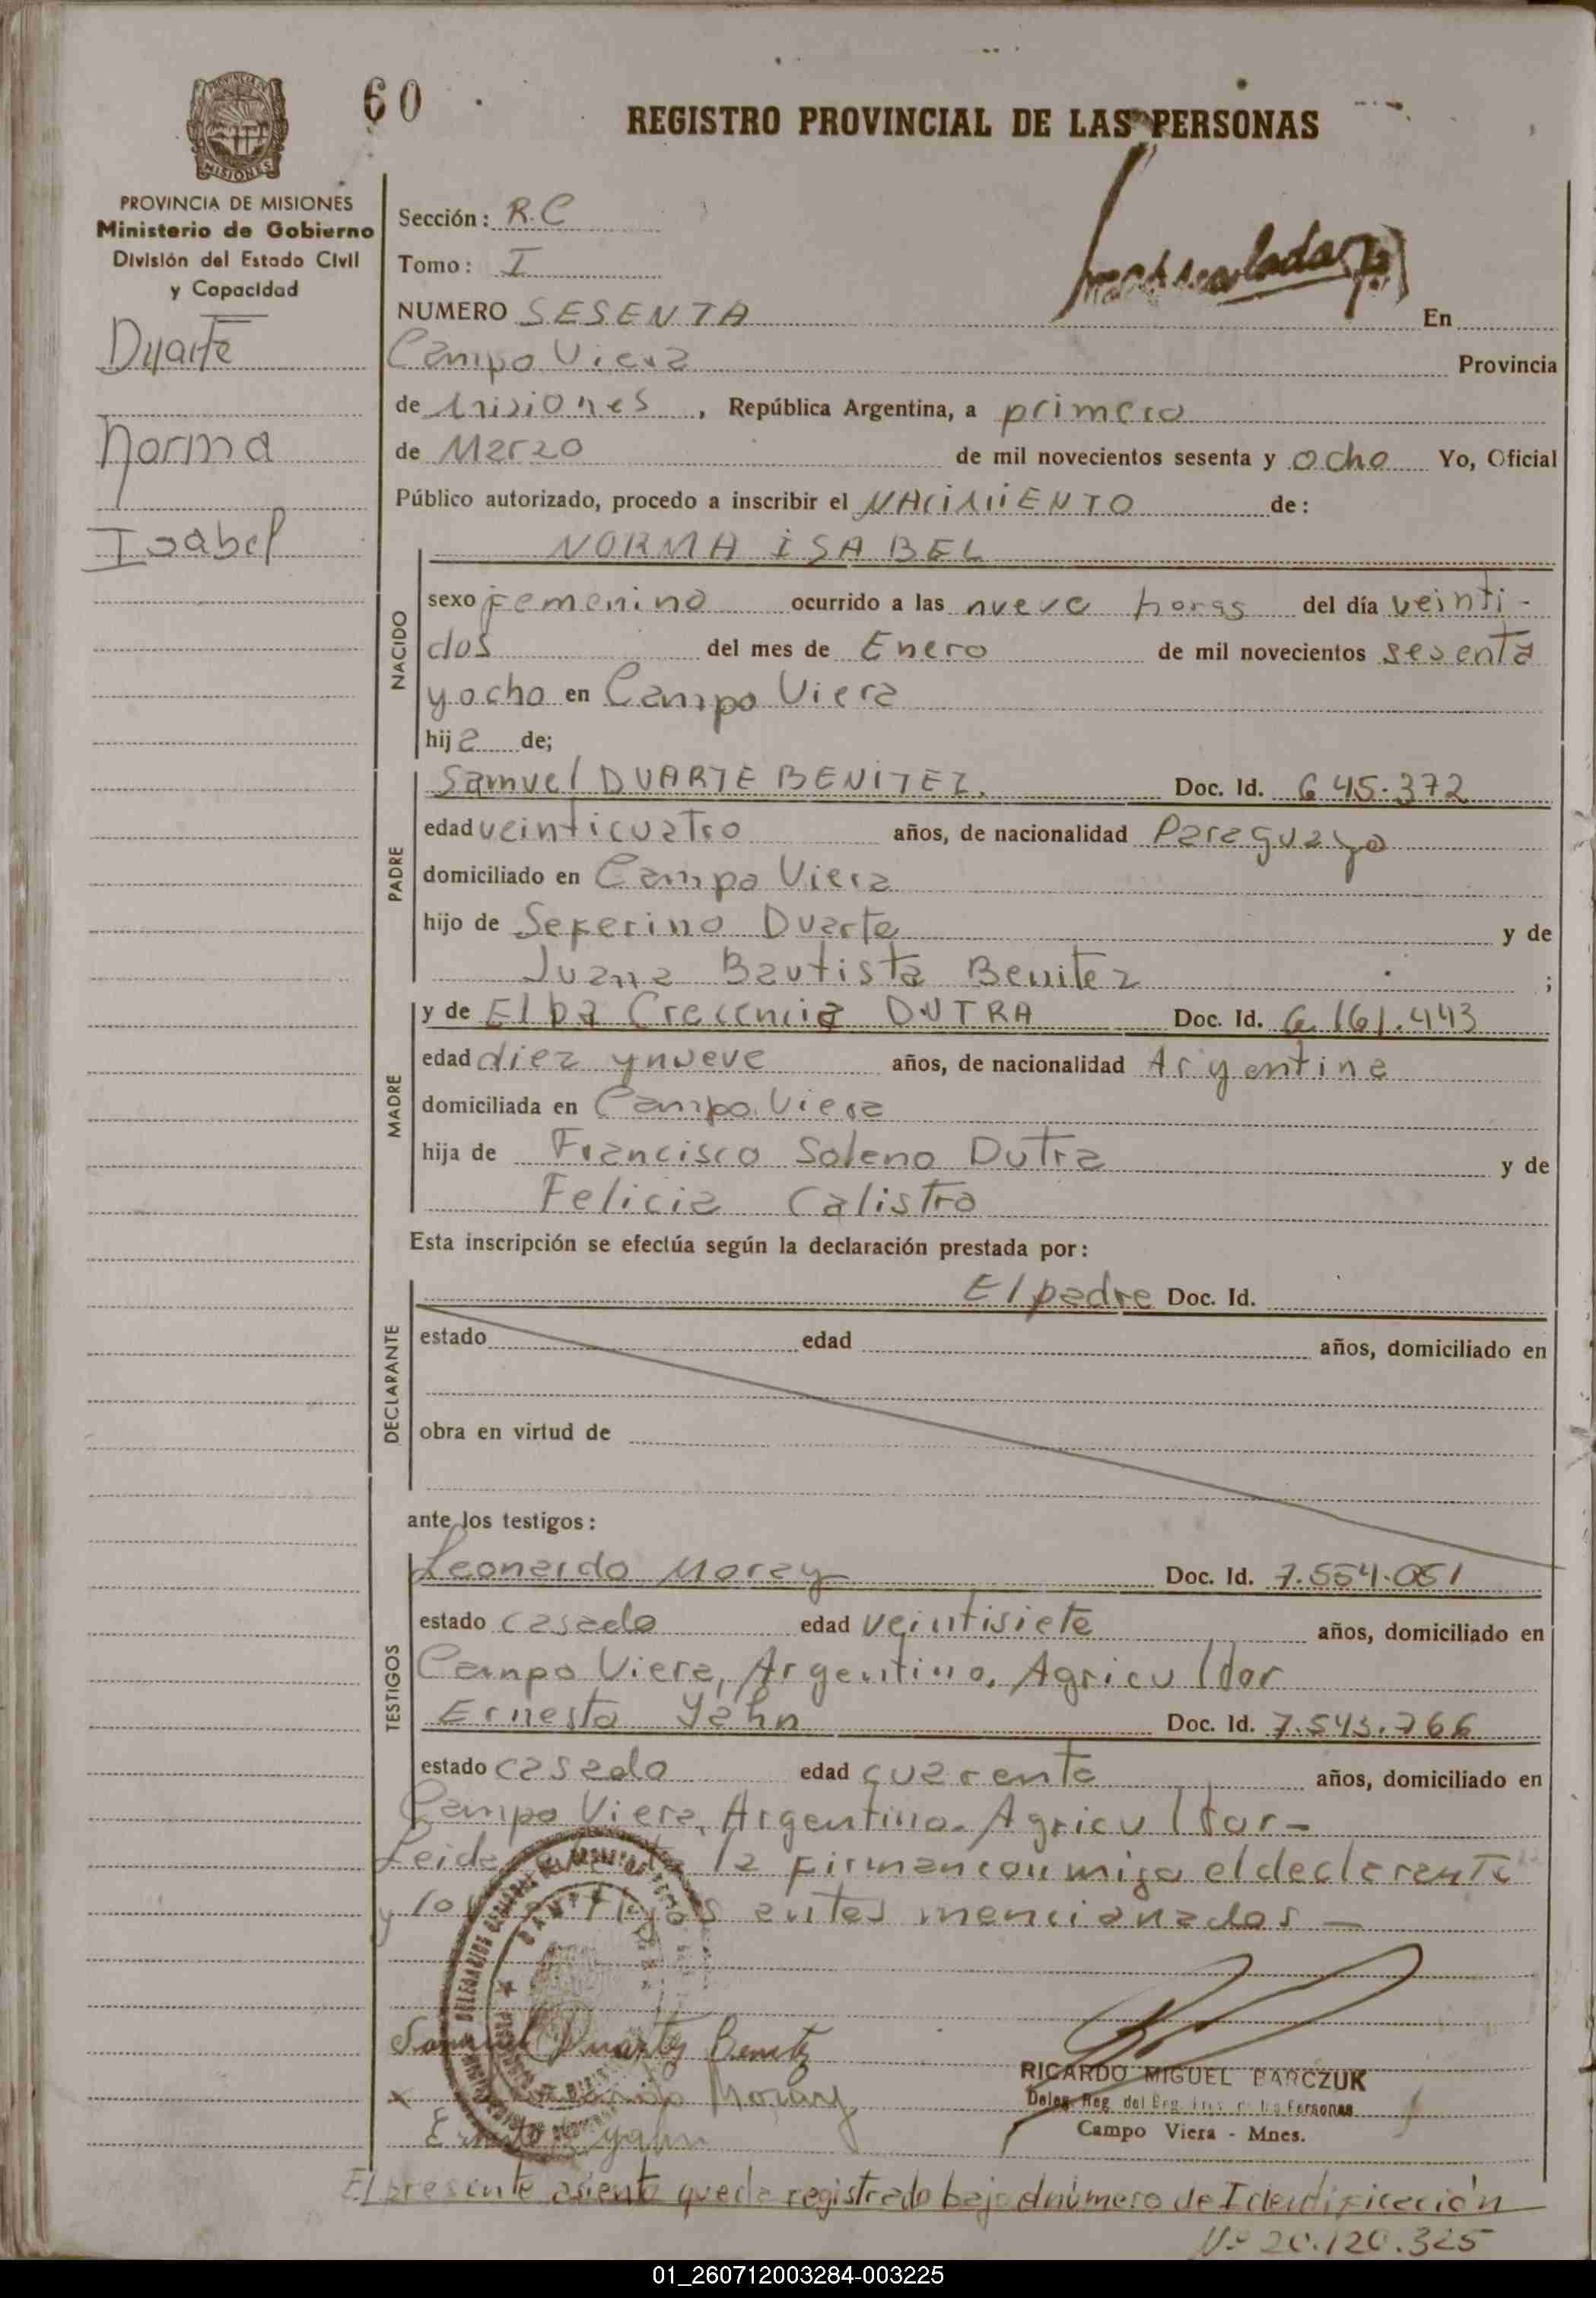 60
REGISTRO PROVINCIAL DE LAS PERSONAS
MISIONES
PROVINCIA DE MISIONES
Ministerio de Gobierno
División del Estado Civil
y Capacidad
Duarte
Norma
Isabel
Sección: R.C
Tomo: I
NUMERO SESENTA En
Campo Viera Provincia
de Misiones, República Argentina, a primero
de Marzo de mil novecientos sesenta y ocho Yo, Oficial
Público autorizado, procedo a inscribir el NACIMIENTO de:
NORMA ISABEL
NACIDO
sexo femenino ocurrido a las nueve horas del día veinti-
dos del mes de Enero de mil novecientos sesenta
y ocho en Campo Viera
hija de;
PADRE
Samuel DUARTE BENITEZ. Doc. Id. 645.372
edad veinticuatro años, de nacionalidad Paraguayo
domiciliado en Campo Viera
hijo de Seferino Duarte y de
Juana Bautista Benitez ;
MADRE
y de Elba Crecencia DUTRA Doc. Id. 6.161.443
edad diez y nueve años, de nacionalidad Argentina
domiciliada en Campo Viera
hija de Francisco Soleno Dutra y de
Felicia Calistro
Esta inscripción se efectúa según la declaración prestada por:
DECLARANTE
El padre Doc. Id.
estado edad años, domiciliado en
obra en virtud de
ante los testigos:
TESTIGOS
Leonardo Moray Doc. Id. 7.554.051
estado casado edad veintisiete años, domiciliado en
Campo Viera, Argentino, Agricultor
Ernesto Yahn Doc. Id. 7.543.766
estado casado edad cuarenta años, domiciliado en
Campo Viera, Argentino. Agricultor-
Leida la firman con migo el declarante
y los testigos antes mencionados -
Samuel Duarte Benitez
Moray
Ernesto Yahn
RICARDO MIGUEL BARCZUK
Campo Viera - Mnes.
El presente asiento queda registrado bajo el número de Identificación
Nº 20.120.325
01_260712003284-003225